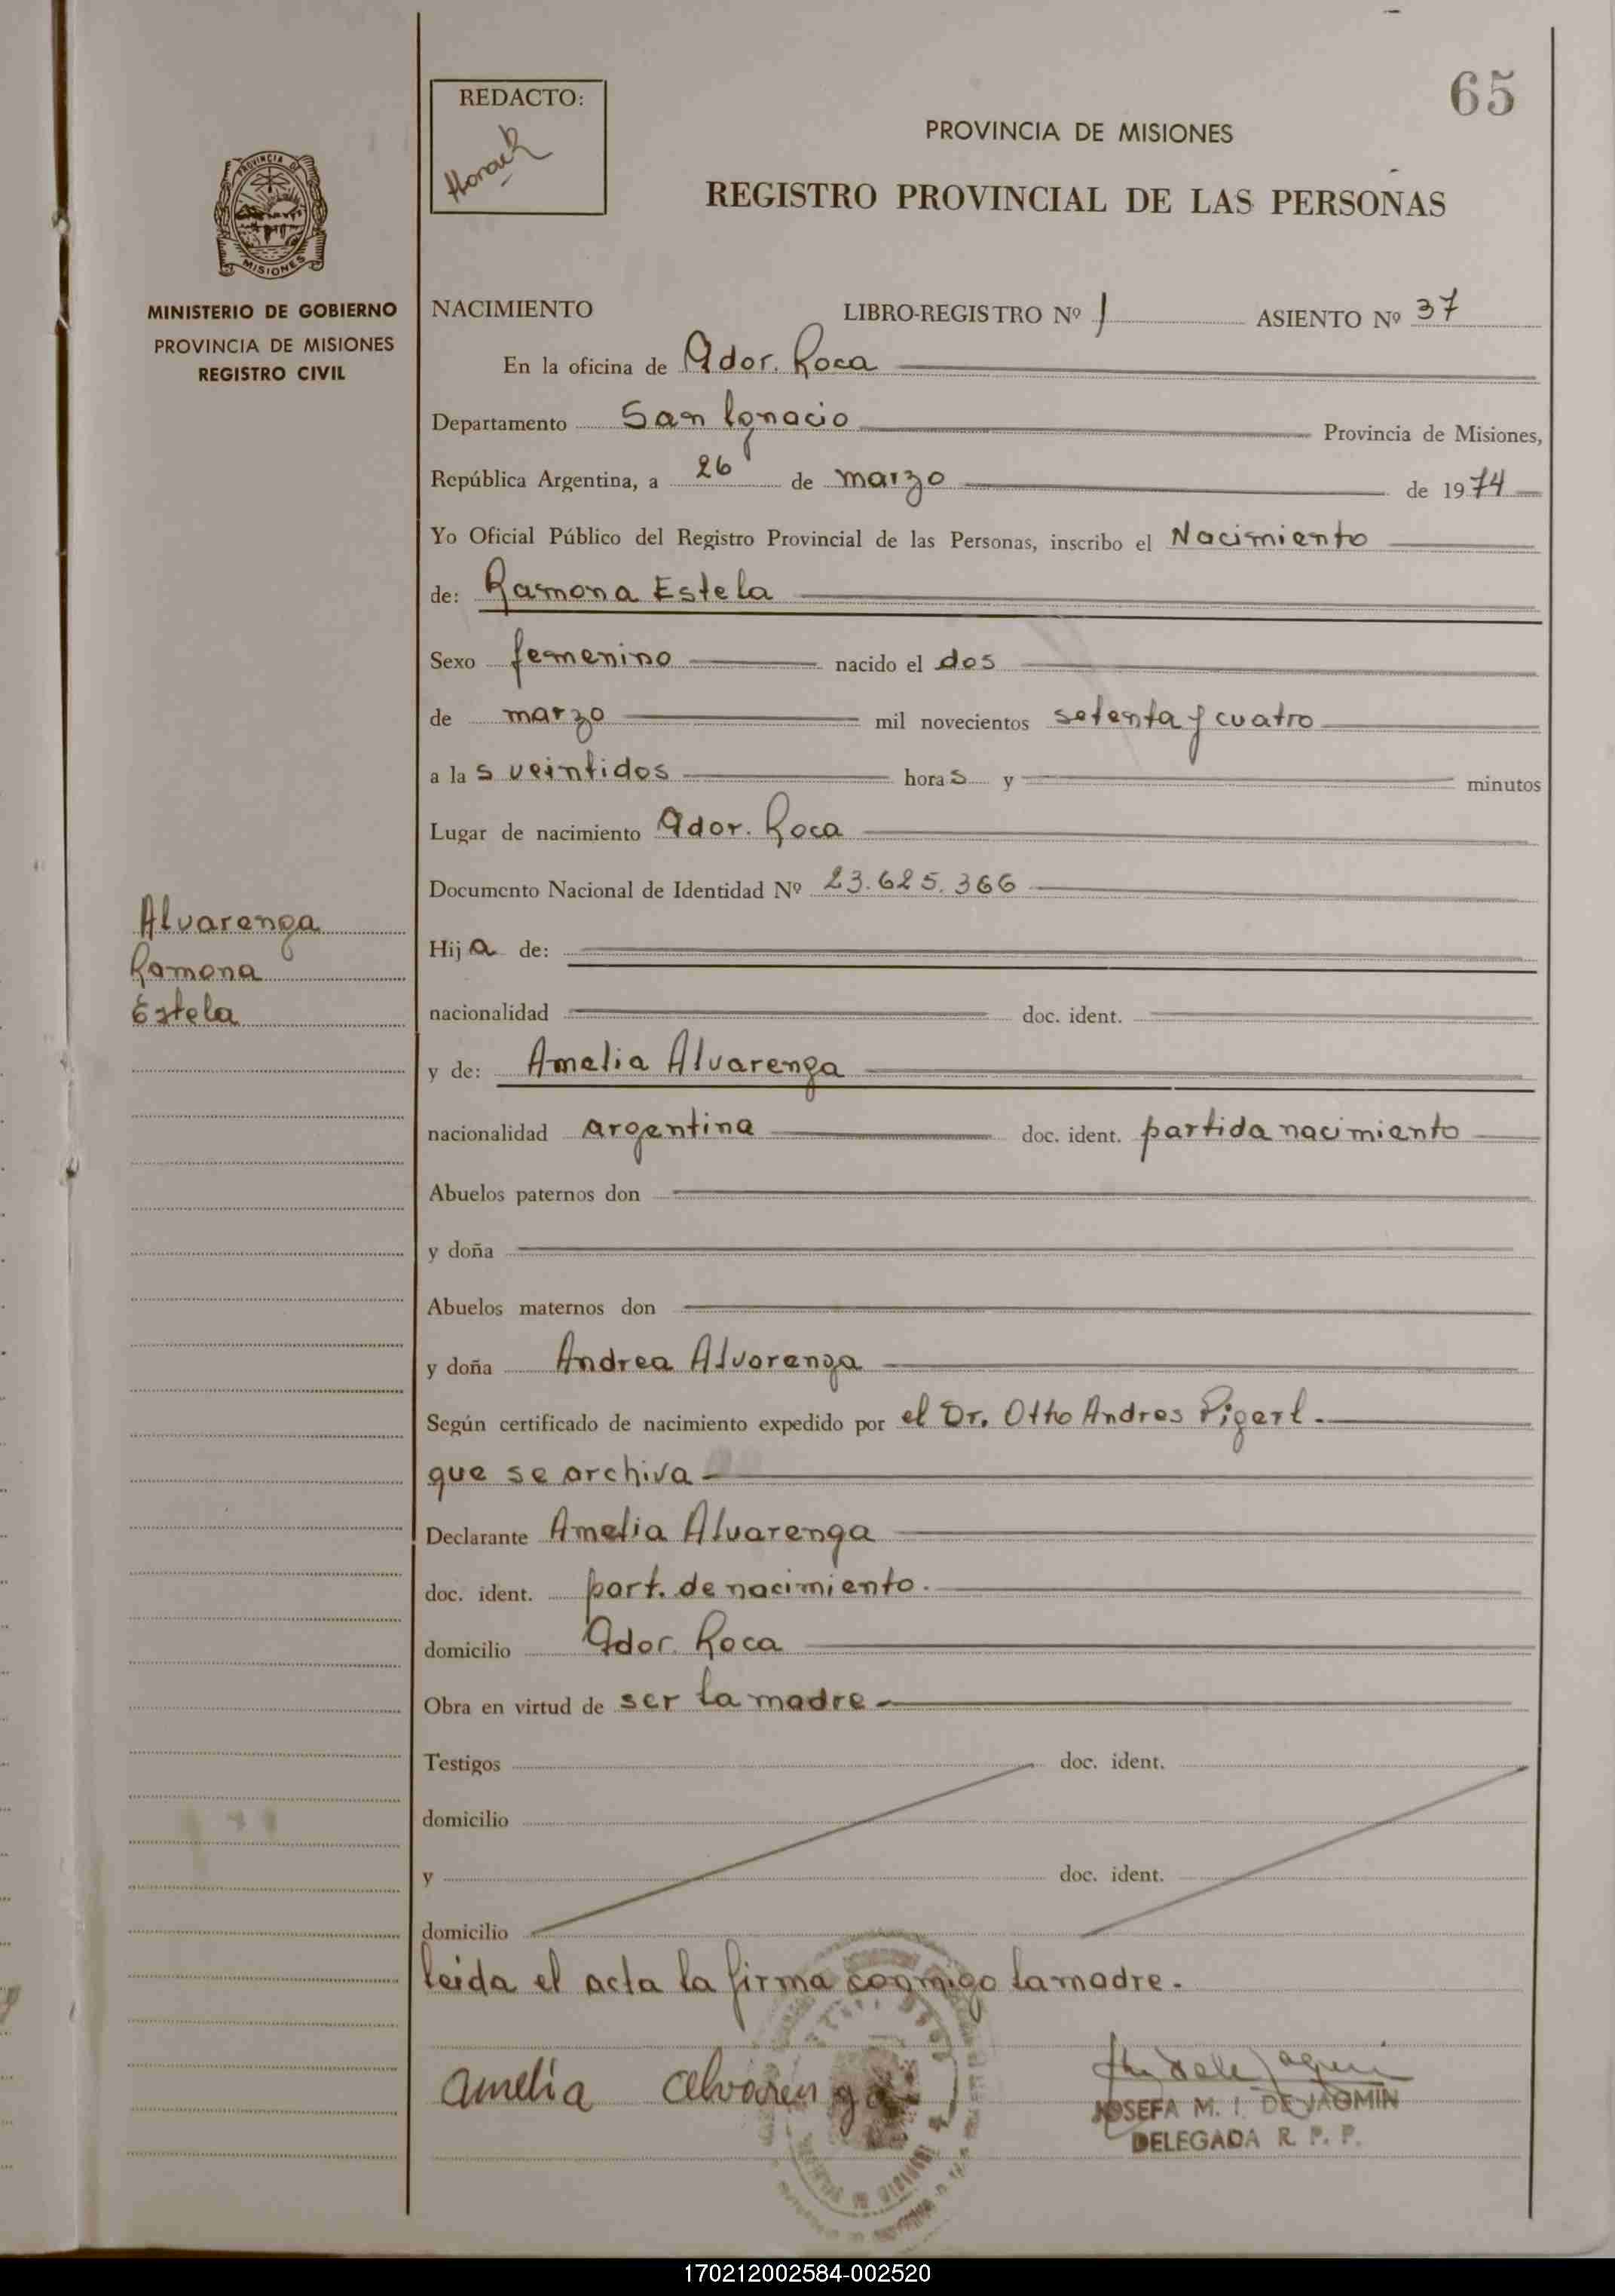 65
REDACTO:
PROVINCIA DE MISIONES
REGISTRO PROVINCIAL DE LAS PERSONAS
PROVINCIA DE
MISIONES
MINISTERIO DE GOBIERNO
PROVINCIA DE MISIONES
REGISTRO CIVIL
NACIMIENTO LIBRO-REGISTRO Nº 1 ASIENTO Nº 37
En la oficina de Gdor. Roca
Departamento San Ignacio Provincia de Misiones,
República Argentina, a 26 de marzo de 1974
Yo Oficial Público del Registro Provincial de las Personas, inscribo el Nacimiento
de: Ramona Estela
Sexo femenino nacido el dos
de marzo mil novecientos setenta y cuatro
a las veintidos horas y minutos
Lugar de nacimiento Gdor. Roca
Documento Nacional de Identidad Nº 23.625.366
Alvarenga
Ramona
Estela
Hija de:
nacionalidad doc. ident.
y de: Amelia Alvarenga
nacionalidad argentina doc. ident. partida nacimiento
Abuelos paternos don
y doña
Abuelos maternos don
y doña Andrea Alvarenga
Según certificado de nacimiento expedido por el Dr. Otto Andres Pigerl.
que se archiva
Declarante Amelia Alvarenga
doc. ident. part. de nacimiento.
domicilio Gdor. Roca
Obra en virtud de ser la madre
Testigos doc. ident.
domicilio
y doc. ident.
domicilio
leida el acta la firma conmigo la madre.
amelia alvarenga
JOSEFA M. I. DE JAGMIN
DELEGADA R. P. P.
170212002584-002520